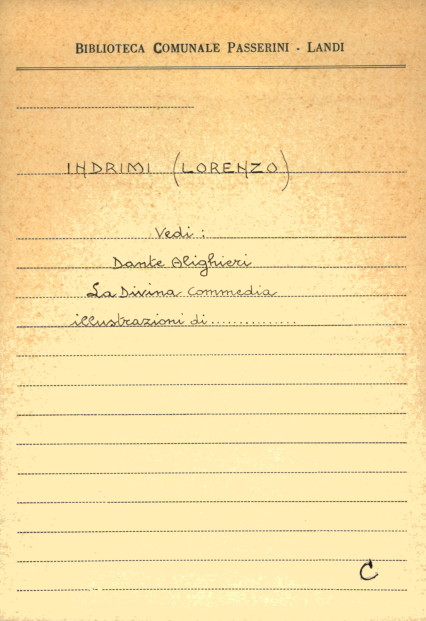 BIBLIOTECA COMUNALE PASSERINI - LANDI
INDRIMI (LORENZO)
Vedi :
Dante Alighieri
La Divina Commedia
illustrazioni di..............
C